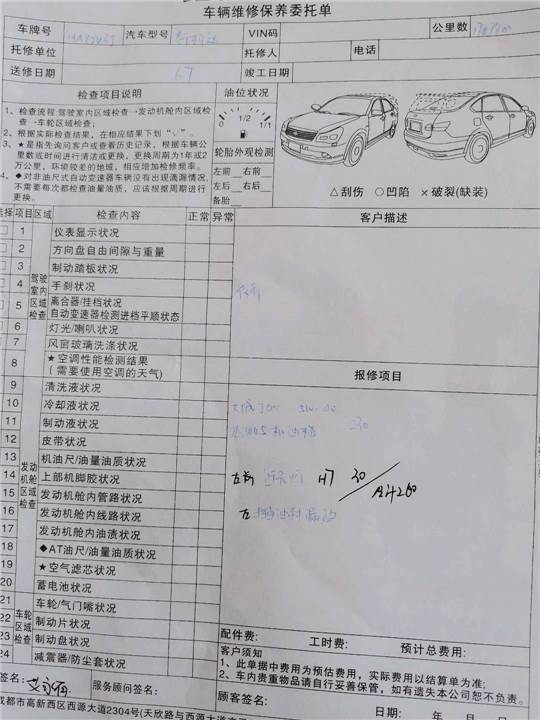 车辆维修保养委托单
车牌号 汽车型号 VIN码 公里数
托修单位 托修人 电话
送修日期 6.7 竣工日期
检查项目说明 油位状况
1、检查流程:驾驶室内区域检查→发动机舱内区域检查→车轮区域检查;
2、根据实际检查结果,在相应结果下划“√”。
3、★是指先询问客户或查看历史记录,根据车辆公里数或时间进行清洁或更换,更换周期为1年或2万公里,环境较差的地域,相应增加检修频率。
4、◆对非油尺式自动变速器车辆没有出现滴漏情况,不需要每次都检查油量油质,应该根据周期进行更换。
0 1/2 1/1
轮胎外观检测
左前 右前
左后 右后
备胎
△刮伤 ○凹陷 ×破裂(缺装)
选择 项目 区域 检查内容 正常 异常 客户描述
驾驶室内区域检查
1 仪表显示状况
2 方向盘自由间隙与重量
3 制动踏板状况
4 手刹状况
5 离合器/挂档状况
自动变速器检测进档平顺状态
6 灯光/喇叭状况
7 风窗玻璃洗涤状况
8 ★空调性能检测结果
(需要使用空调的天气)
保养
报修项目
发动机舱区域检查
9 清洗液状况
10 冷却液状况
11 制动液状况
12 皮带状况
13 机油尺/油量油质状况
14 上部机脚胶状况
15 发动机舱内管路状况
16 发动机舱内线路状况
17 发动机舱内油渍状况
18 ◆AT油尺/油量油质状况
19 ★空气滤芯状况
20 蓄电池状况
230
左前 H7 30
左
车轮区域检查
21 车轮/气门嘴状况
22 制动片状况
23 制动盘状况
24 减震器/防尘套状况
配件费: 工时费: 预计总费用:
客户须知
1、此单据中费用为预估费用,实际费用以结算单为准;
2、车内贵重物品请自行妥善保管,如有遗失本公司恕不负责。
签名: 服务顾问签名: 顾客签名: 日期: 年 月
成都市高新西区西源大道2304号(天欣路与西源大道